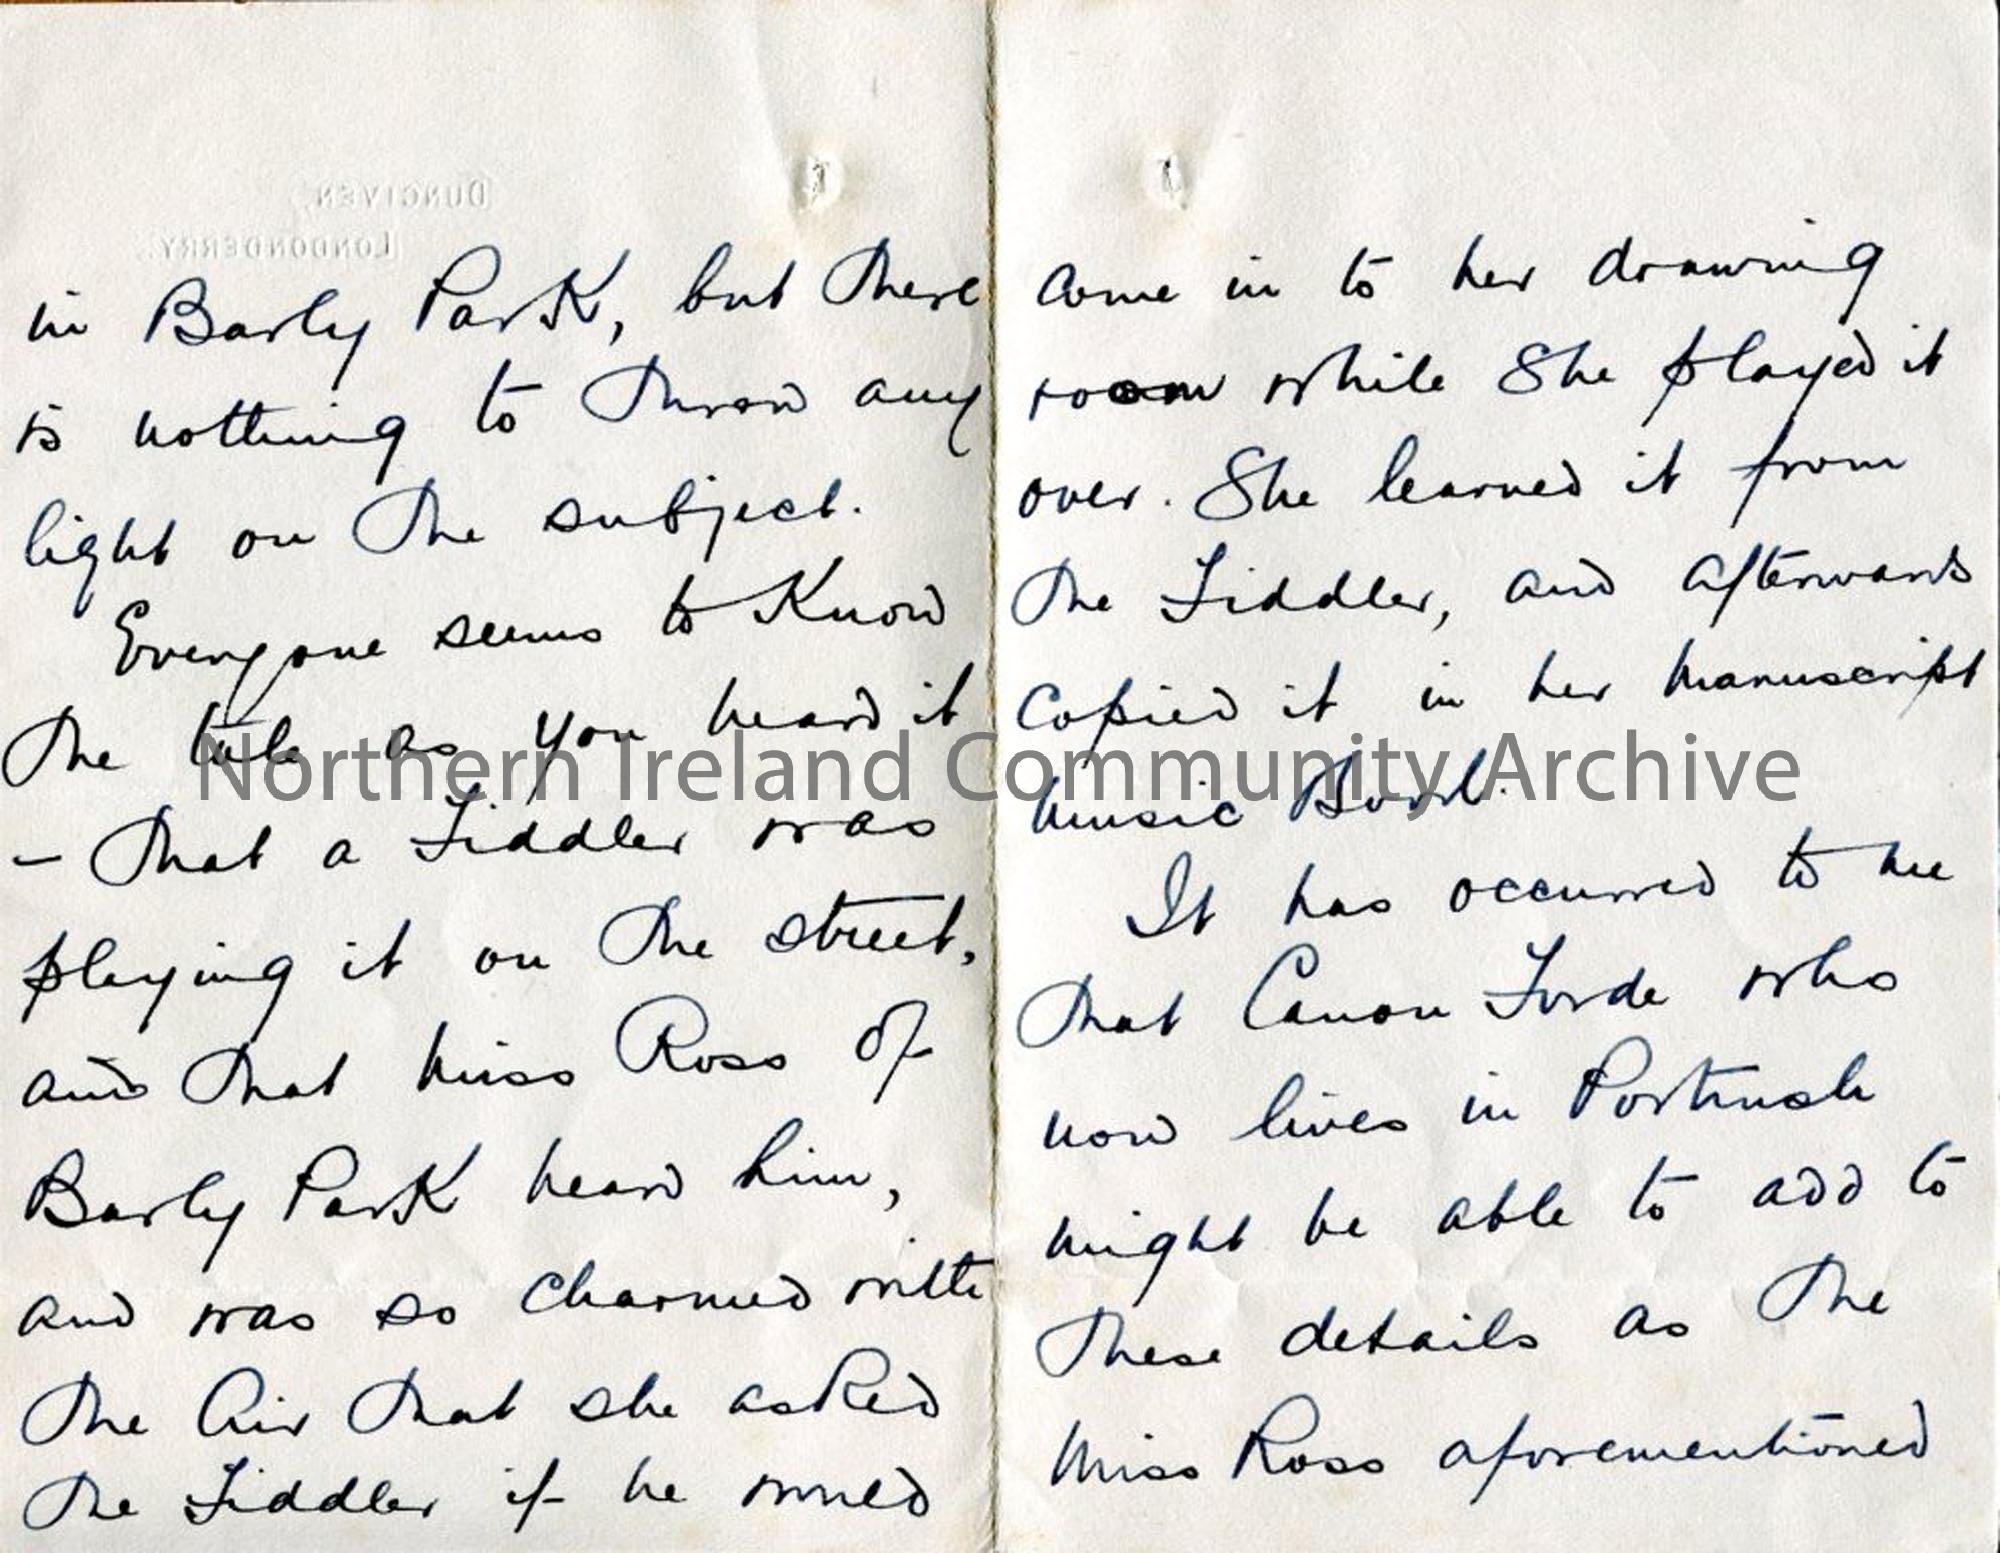 DUNGIVEN,
LONDONDERRY.
in Barly Park, but there
is nothing to throw any
light on the subject.
Everyone seems to know
the tale as you heard it
– that a Fiddler was
playing it on the street,
and that Miss Ross of
Barly Park heard him,
and was so charmed with
the Air that she asked
the Fiddler if he would
come in to her drawing
room while She played it
over. She learned it from
the Fiddler, and afterwards
Copied it in her manuscript
music Book.
It has occurred to me
that Canon Forde who
now lives in Portrush
might be able to add to
these details as the
Miss Ross aforementioned
Northern Ireland Community Archive